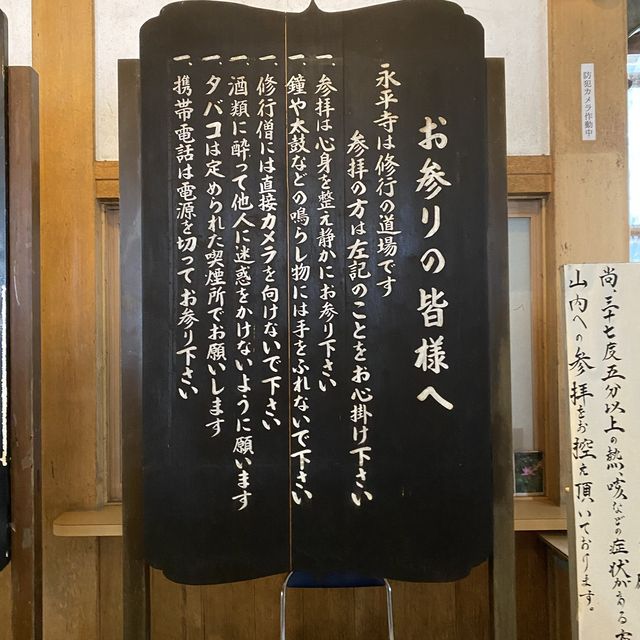 お参りの皆様へ
永平寺は修行の道場です
参拝の方は左記のことをお心掛け下さい
一、参拝は心身を整え静かにお参り下さい
一、鐘や太鼓などの鳴らし物には手をふれないで下さい
一、修行僧には直接カメラを向けないで下さい
一、酒類に酔って他人に迷惑をかけないように願います
一、タバコは定められた喫煙所でお願いします
一、携帯電話は電源を切ってお参り下さい
防犯カメラ作動中
尚、三十七度五分以上の熱、咳などの症状がある方
山内への参拝をお控え頂いております。